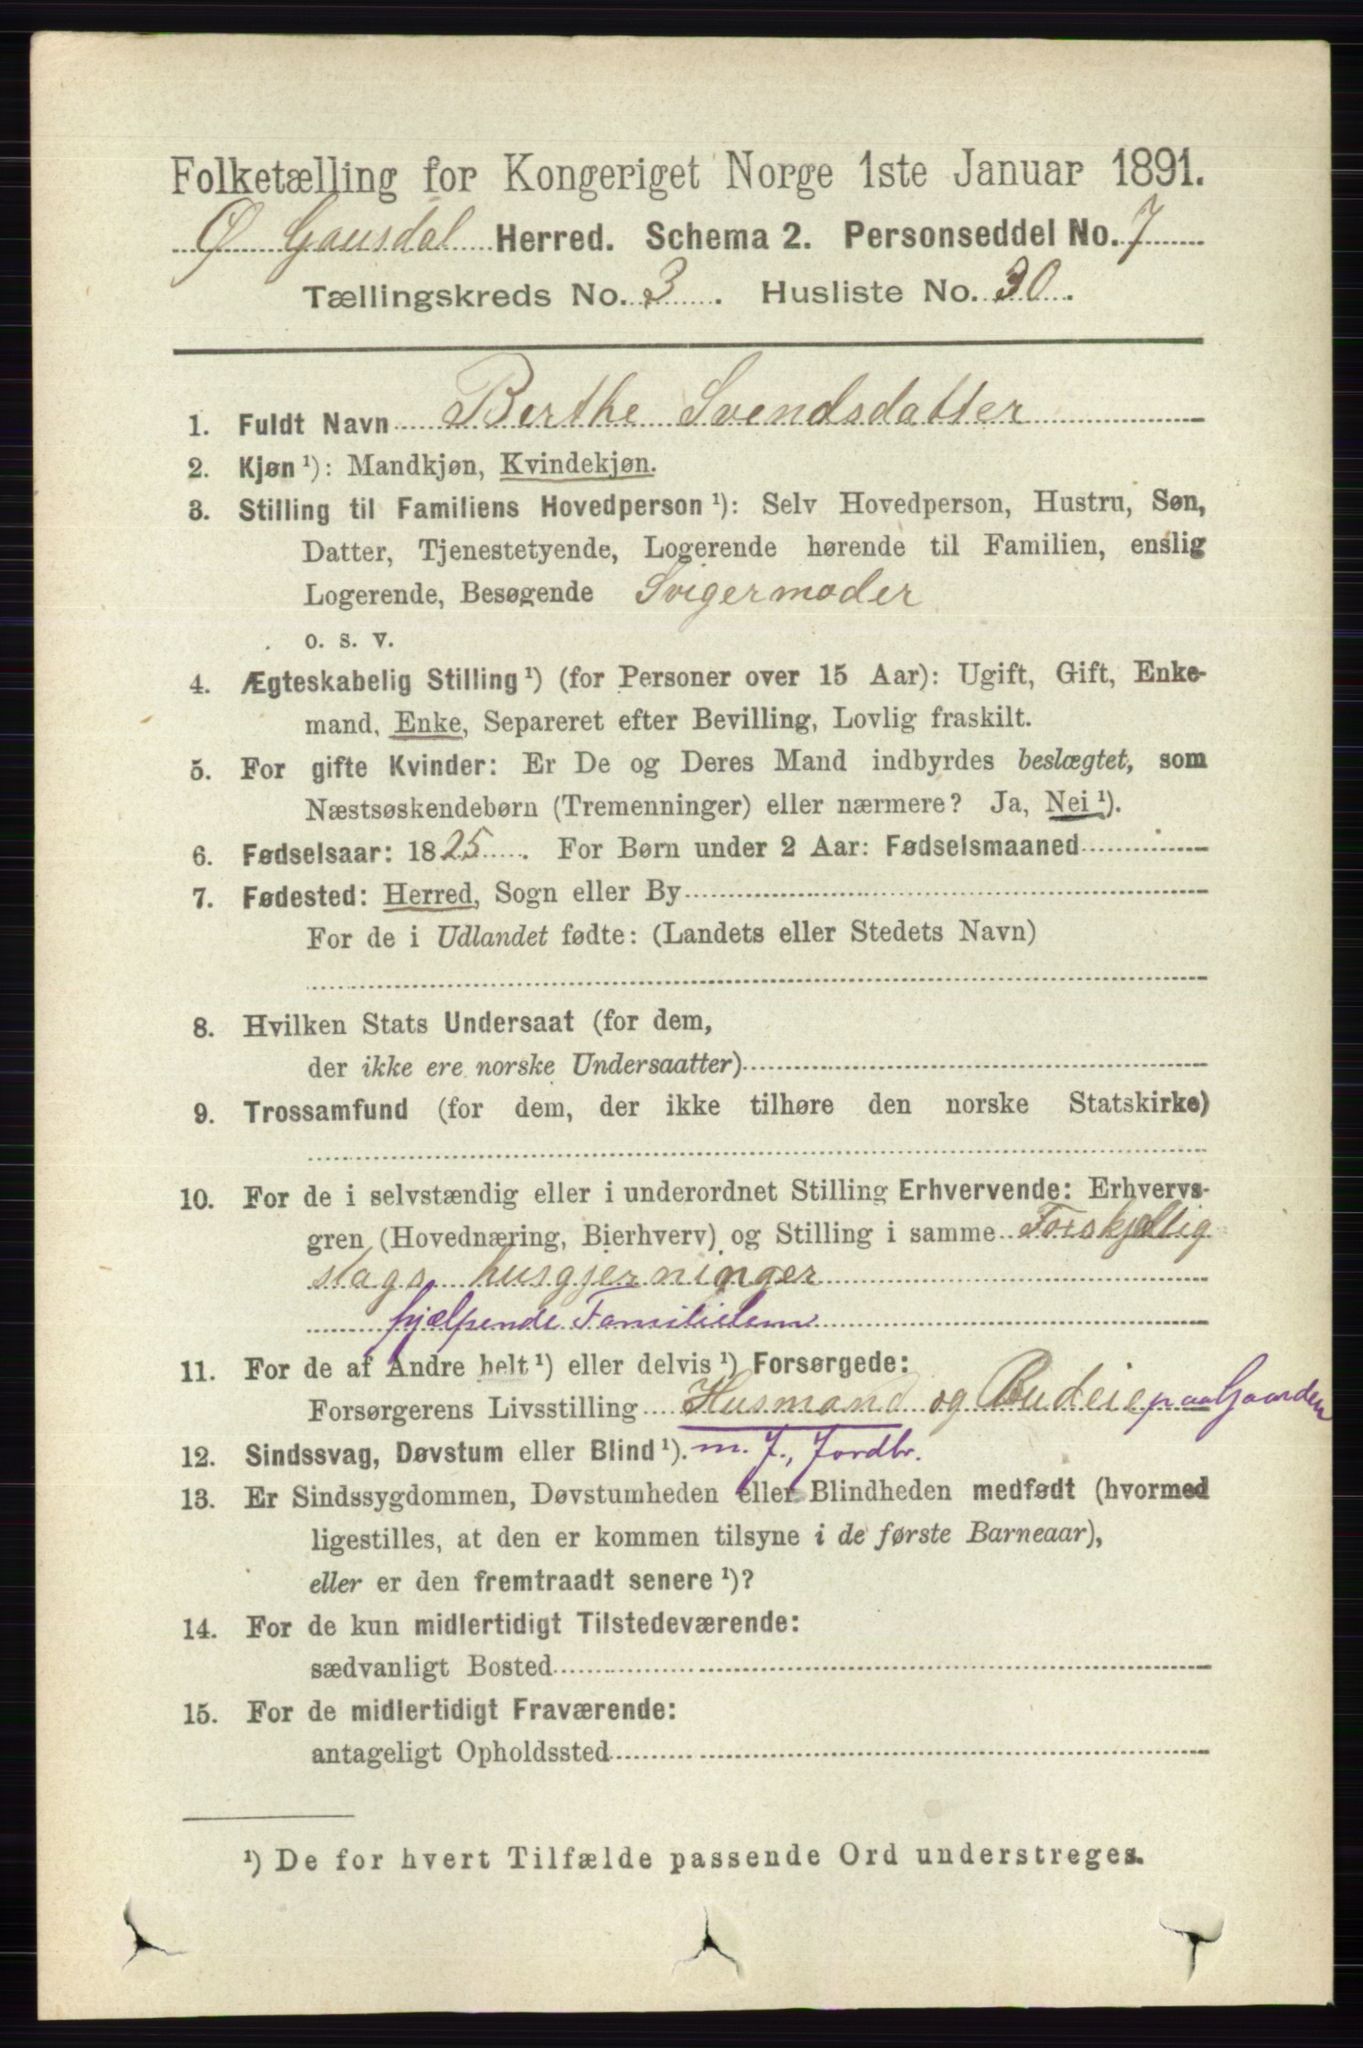 Folketælling for Kongeriget Norge 1ste Januar 1891.
Ø Gausdal Herred. Schema 2. Personseddel No. 7
Tællingskreds No. 3. Husliste No. 30.
1. Fuldt Navn Berthe Svendsdatter
2. Kjøn ¹): Mandkjøn, Kvindekjøn.
3. Stilling til Familiens Hovedperson ¹): Selv Hovedperson, Hustru, Søn,
Datter, Tjenestetyende, Logerende hørende til Familien, enslig
Logerende, Besøgende Svigermoder
o. s. v.
4. Ægteskabelig Stilling ¹) (for Personer over 15 Aar): Ugift, Gift, Enke-
mand, Enke, Separeret efter Bevilling, Lovlig fraskilt.
5. For gifte Kvinder: Er De og Deres Mand indbyrdes beslægtet, som
Næstsøskendebørn (Tremenninger) eller nærmere? Ja, Nei ¹).
6. Fødselsaar: 1825. For Børn under 2 Aar: Fødselsmaaned
7. Fødested: Herred, Sogn eller By
For de i Udlandet fødte: (Landets eller Stedets Navn)
8. Hvilken Stats Undersaat (for dem,
der ikke ere norske Undersaatter)
9. Trossamfund (for dem, der ikke tilhøre den norske Statskirke)
10. For de i selvstændig eller i underordnet Stilling Erhvervende: Erhvervs-
gren (Hovednæring, Bierhverv) og Stilling i samme Forskjellig
slags husgjerninger
hjælpende Familielem
11. For de af Andre helt ¹) eller delvis ¹) Forsørgede:
Forsørgerens Livsstilling Husmand og Budeie paa Gaarden
12. Sindssvag, Døvstum eller Blind ¹). m. J., Jordbr.
13. Er Sindssygdommen, Døvstumheden eller Blindheden medfødt (hvormed
ligestilles, at den er kommen tilsyne i de første Barneaar),
eller er den fremtraadt senere ¹)?
14. For de kun midlertidigt Tilstedeværende:
sædvanligt Bosted
15. For de midlertidigt Fraværende:
antageligt Opholdssted
¹) De for hvert Tilfælde passende Ord understreges.